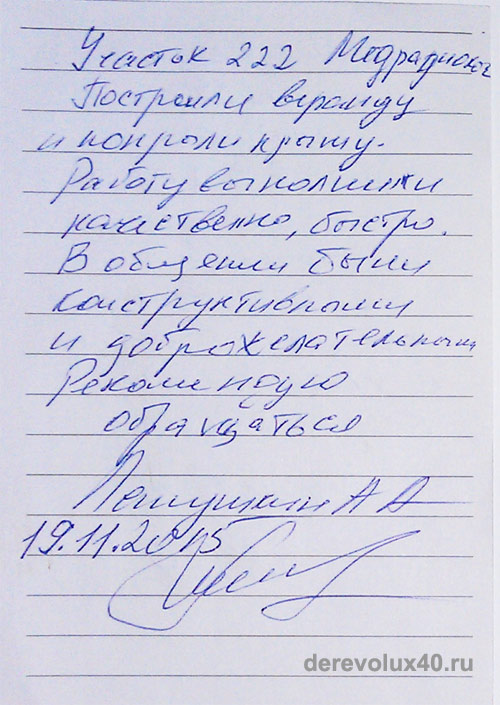 Участок 222 Медрадиолог
Построили веранду
и покрыли крышу.
Работу выполнили
качественно, быстро.
В общении были
конструктивными
и доброжелательными
Рекомендую
обращаться
А А
19.11.2015
derevolux40.ru